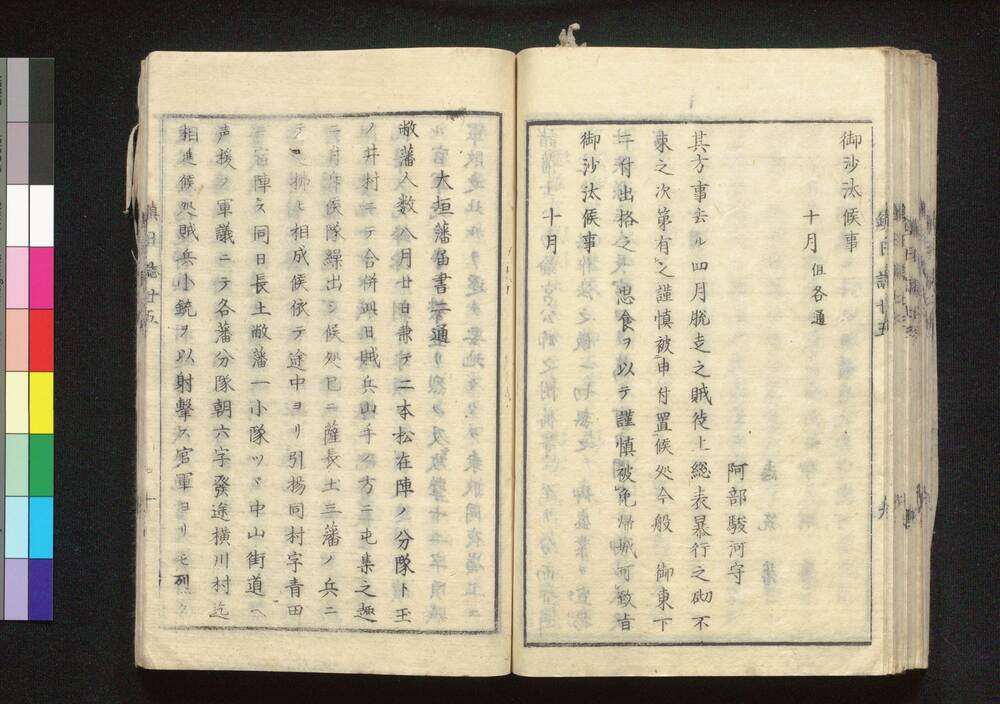 御沙汰候事
十月 但各通
阿部駿河守
其方事去ル四月脱走之賊徒上総表暴行之砌不
束之次第有之謹慎被申付置候処今般 御東下
ニ付出格之 思食ヲ以テ謹慎被免帰城可致旨
御沙汰候事
十月
大垣藩届書二通
敝藩人数八月廿日兼テ二本松在陣ノ分隊ト玉
ノ井村ニテ合併此日賊兵山手ノ方ニ屯集之趣
ニ付斥候隊繰出シ候処已ニ薩長土三藩ノ兵ニ
テ追拂ヒ相成候依テ途中ヨリ引揚同村字青田
ニ宿陣ス同日長土敝藩一小隊ツヽ中山街道ヘ
声援ノ軍議ニテ各藩分隊朝六字發途横川村迄
相進候処賊兵小銃ヲ以射撃ス官軍ヨリモ烈ク
鎮日誌十五
鎮日誌廿五
十